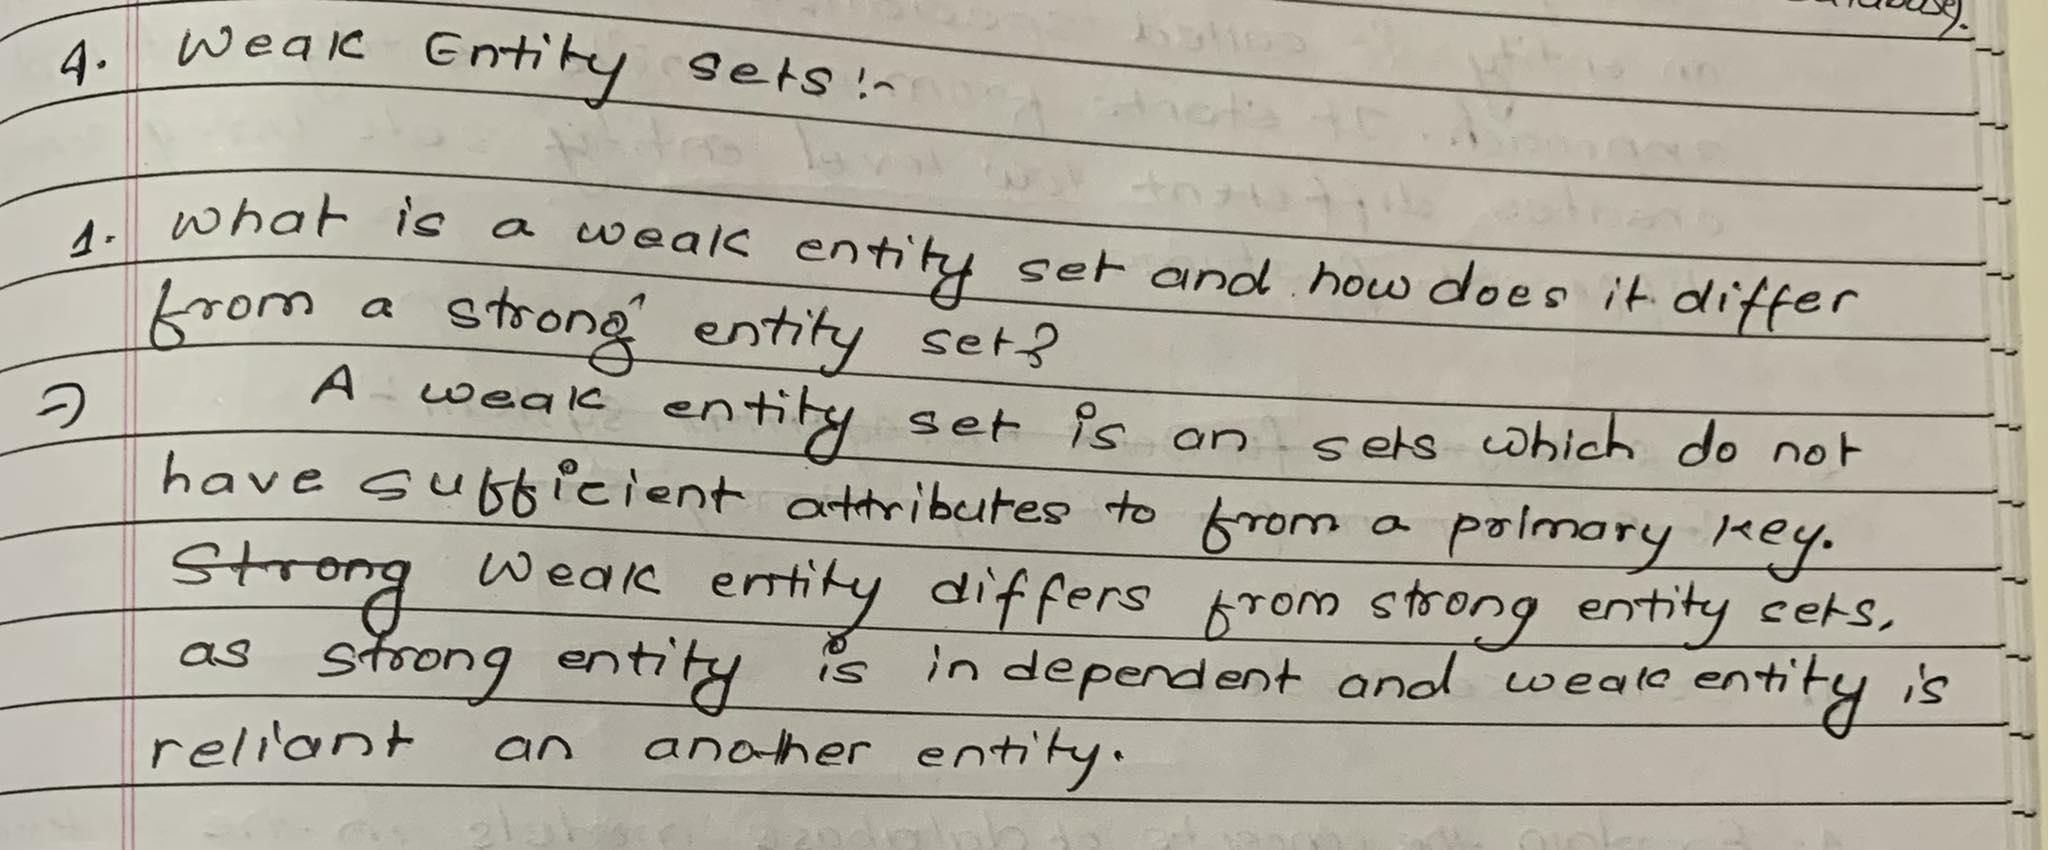 4. Weak Entity sets :-
1. What is a weak entity set and how does it differ
from a strong entity set?
⇒ A weak entity set is an sets which do not
have sufficient attributes to from a primary key.
Strong Weak entity differs from strong entity sets,
as strong entity is independent and weak entity is
reliant an another entity.